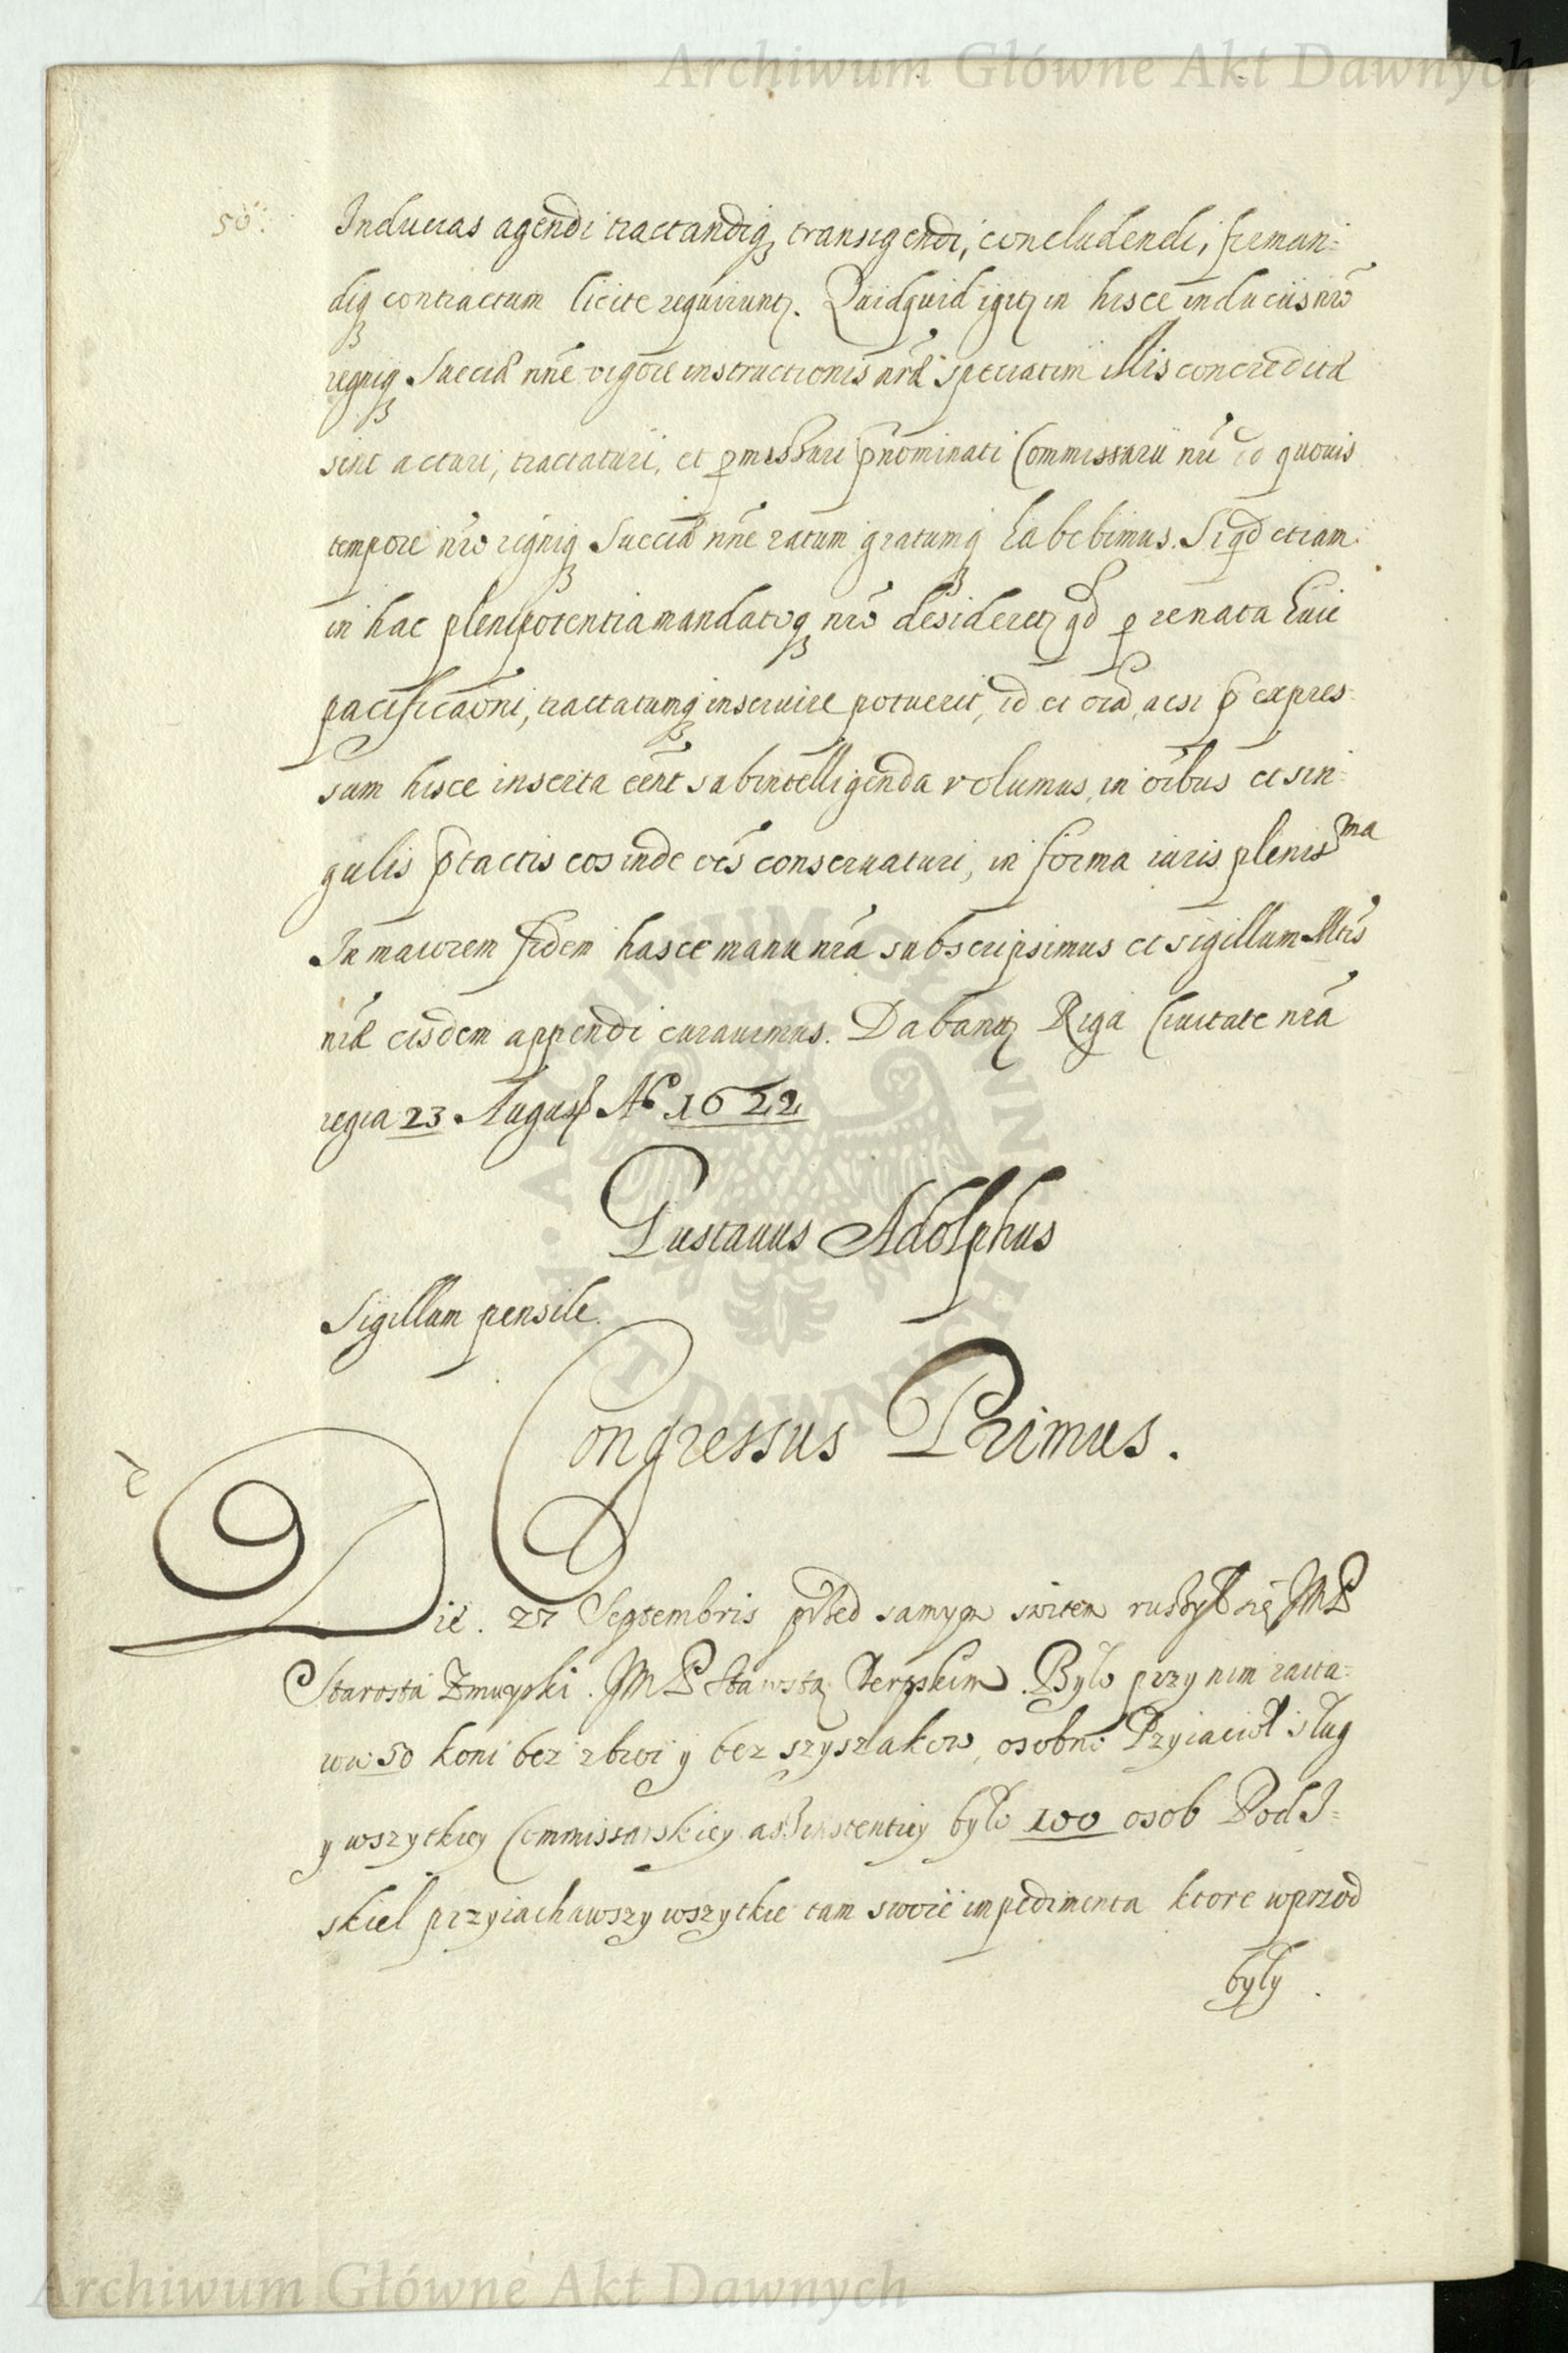 Archiwum Główne Akt Dawnych
50
Inducias agendi tractandiq, transigendi, concludendi, firman:
diq contractum licite requirunt. Quidquid igit in hisce induciis nro
regniq Sueciæ nñe vigore instructionis nræ speciatim illis concreditæ
sint acturi, tractaturi, et pmissuri pnominati Commissarii nri id quovis
tempore nro regniq Sueciæ nñe ratum gratumq habebimus. Si qd etiam
in hac plenipotentia mandatoq nro desideret qd p re nata huic
pacificaoni, tractatumq inservire potuerit, id et oia, acsi p expres-
sum hisce inserta eent subintelligenda volumus, in oibus et sin-
gulis ptactis eos inde oes conservaturi, in forma iuris plenissma
In maiorem fidem hasce manu nra subscripsimus et sigillum Mtis
nræ eisdem appendi curavimus. Dabant Riga Civitate nra
regia 23 Augusti Aº 1622
Gustavus Adolphus
Sigillum pensile.
Congressus Primus.
Die. 27 Septembris przed samym switem ruszył się JMP
Starosta Zmuyski. JMP Starostą Derpskim. Było przy nim raita-
row 50 koni bez zbroi y bez szyszakow, osobno Przyiacioł sług
y wszytkiey Commissarskiey assistentiey było 100 osob Pod I-
skiel przyiachawszy wszytkie tam swoie impedimenta ktore wprzod
były
Archiwum Główne Akt Dawnych